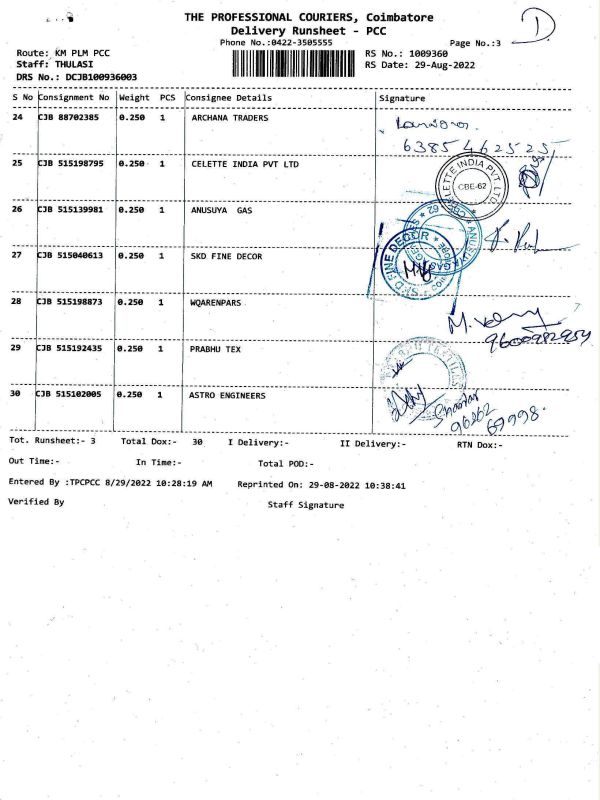 THE PROFESSIONAL COURIERS, Coimbatore
Delivery Runsheet - PCC
Phone No.:0422-3505555
Page No.:3
Route: KM PLM PCC
RS No.: 1009360
Staff: THULASI
RS Date: 29-Aug-2022
DRS No.: DCJB100936003
S No Consignment No Weight PCS Consignee Details Signature
24 CJB 88702385 0.250 1 ARCHANA TRADERS
6385462525
25 CJB 515198795 0.250 1 CELETTE INDIA PVT LTD
CELETTE INDIA PVT LTD
CBE-62
26 CJB 515139981 0.250 1 ANUSUYA GAS
27 CJB 515040613 0.250 1 SKD FINE DECOR
SKD FINE DECOR
28 CJB 515198873 0.250 1 WQARENPARS
9600982954
29 CJB 515192435 0.250 1 PRABHU TEX
30 CJB 515102005 0.250 1 ASTRO ENGINEERS
96262
69998
Tot. Runsheet:- 3 Total Dox:- 30 I Delivery:- II Delivery:- RTN Dox:-
Out Time:- In Time:- Total POD:-
Entered By :TPCPCC 8/29/2022 10:28:19 AM Reprinted On: 29-08-2022 10:38:41
Verified By Staff Signature